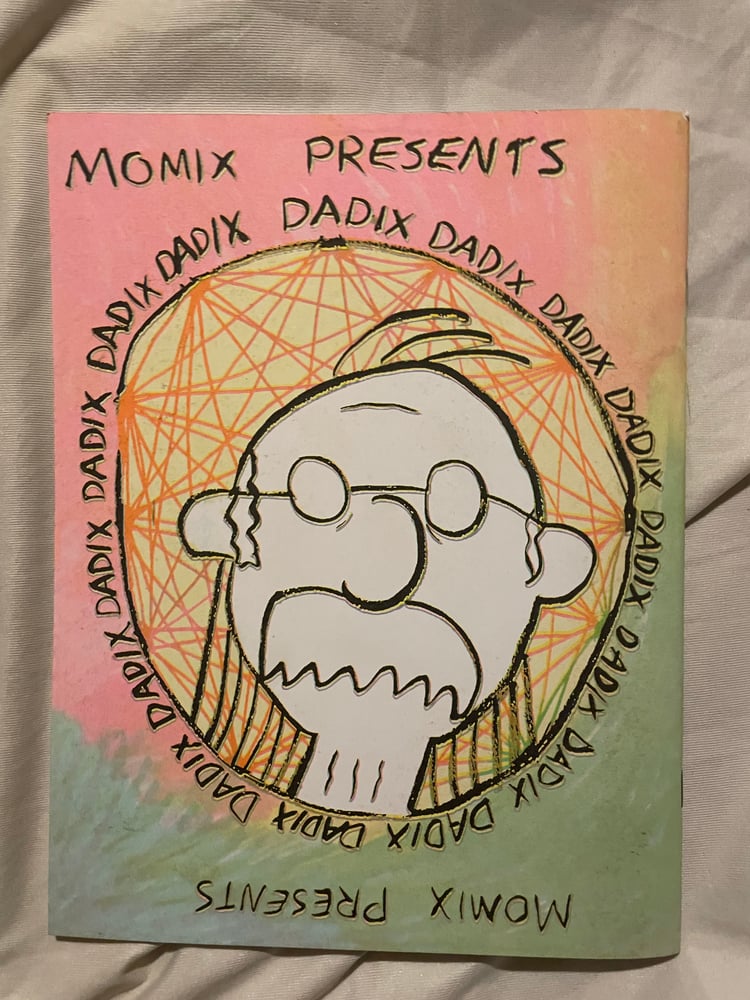 MOMIX PRESENTS
DADIX DADIX DADIX DADIX DADIX DADIX DADIX DADIX DADIX DADIX DADIX DADIX DADIX DADIX DADIX
MOMIX PRESENTS